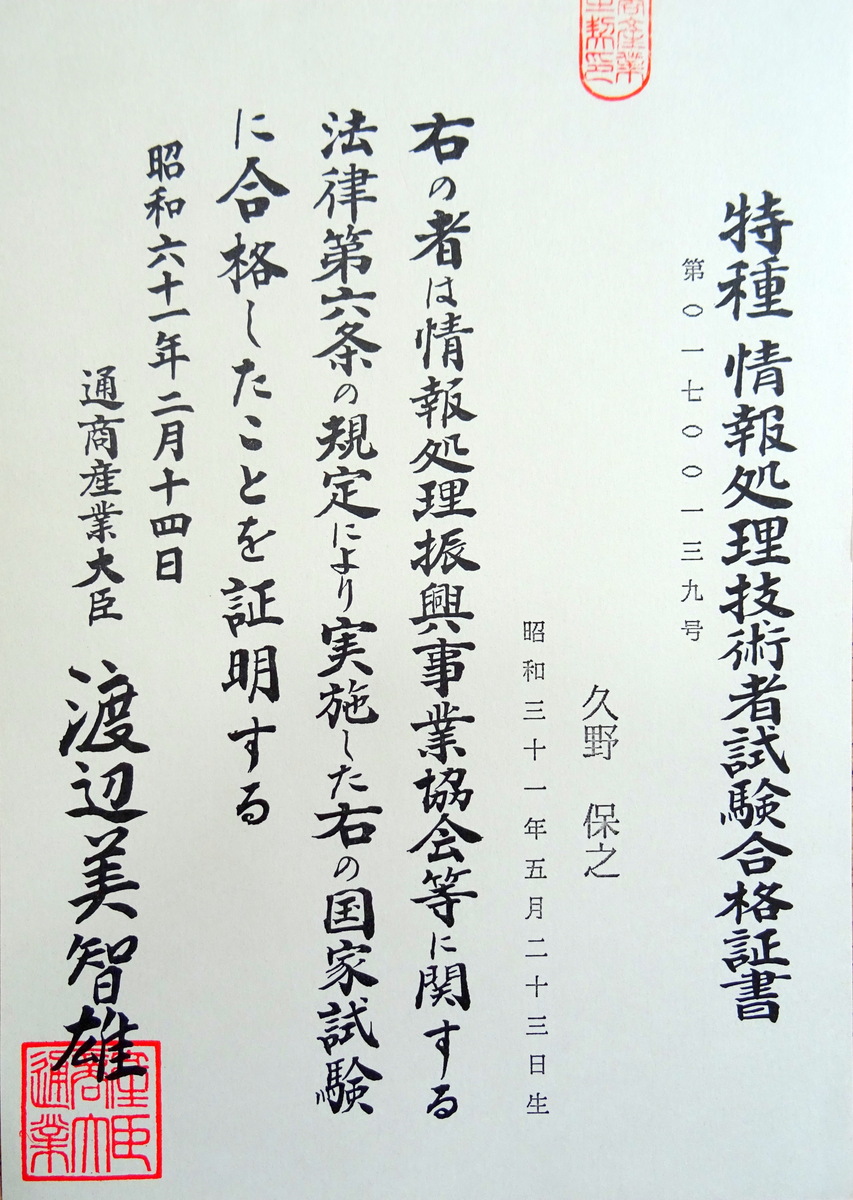 特種 情報処理技術者試験合格証書
第〇一七〇〇一三九号
久野 保之
昭和三十一年五月二十三日生
右の者は情報処理振興事業協会等に関する
法律第六条の規定により実施した右の国家試験
に合格したことを証明する
昭和六十一年二月十四日
通商産業大臣 渡辺美智雄